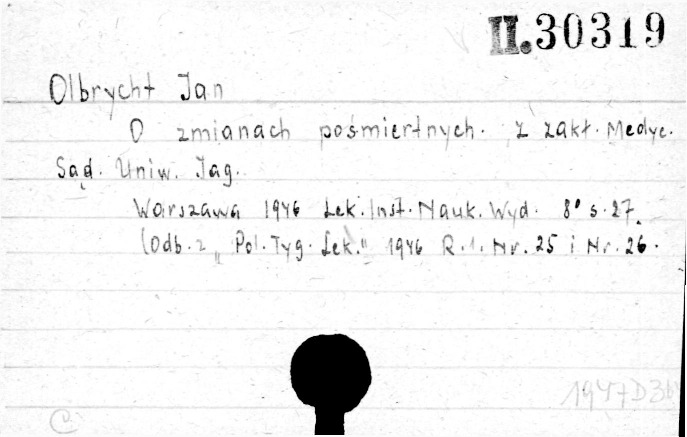 II.30319
Olbrycht Jan
O zmianach pośmiertnych. Z zakł. Medyc.
Sąd. Uniw. Jag.
Warszawa 1946 Lek. Inst. Nauk. Wyd. 8° s. 27.
(Odb. z „Pol. Tyg. Lek." 1946 R. 1. Nr. 25 i Nr. 26.